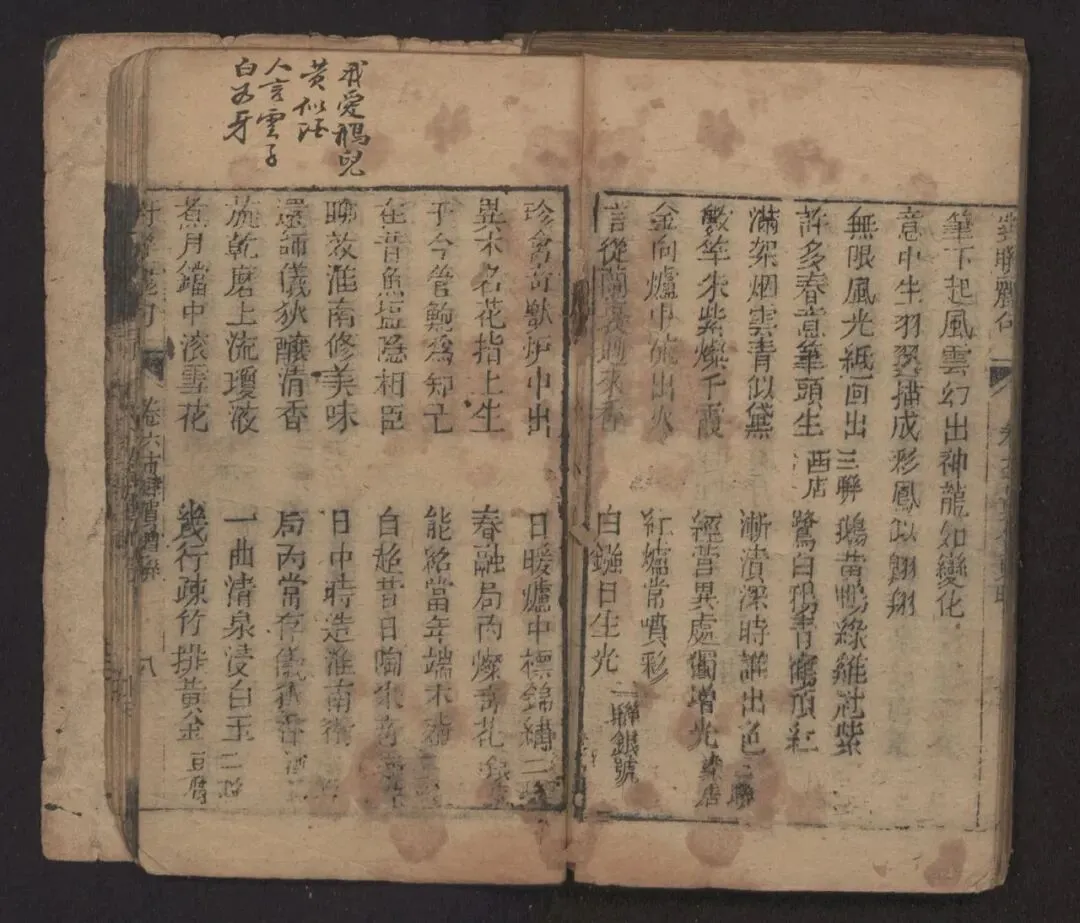 筆下起風雲幻出神龍如變化
意中生羽翼描成彩鳳似翱翔
無限風光紙面出
三聯
鵝黃鴨綠雞冠紫
許多春意筆頭生
西店
鷺白鴉青鶴頂紅
滿架烟雲青似黛
漸漬深時誰出色
二聯
數竿朱紫燦千霞
經營異處獨增光
染店
金向爐中
出火
紅爐常噴彩
言從
來香
白鏹日生光
二聯銀號
珍禽奇獸炉中出
日暖爐中標錦繡
異木名花指上生
春融局內燦奇花
于今管鮑為知己
能
當年端木
在昔魚塩隐相臣
自
昔日陶朱
聊效淮南修美味
日中時造淮南術
還師儀狄釀清香
局內常存儀狄
旋乾磨上流瓊液
一曲清泉浸白玉
煮月鐺中滚雪花
幾行疎竹排黃金
豆腐
卷六
八
我愛鵝兒
黄似酒
人言雲子
白如牙